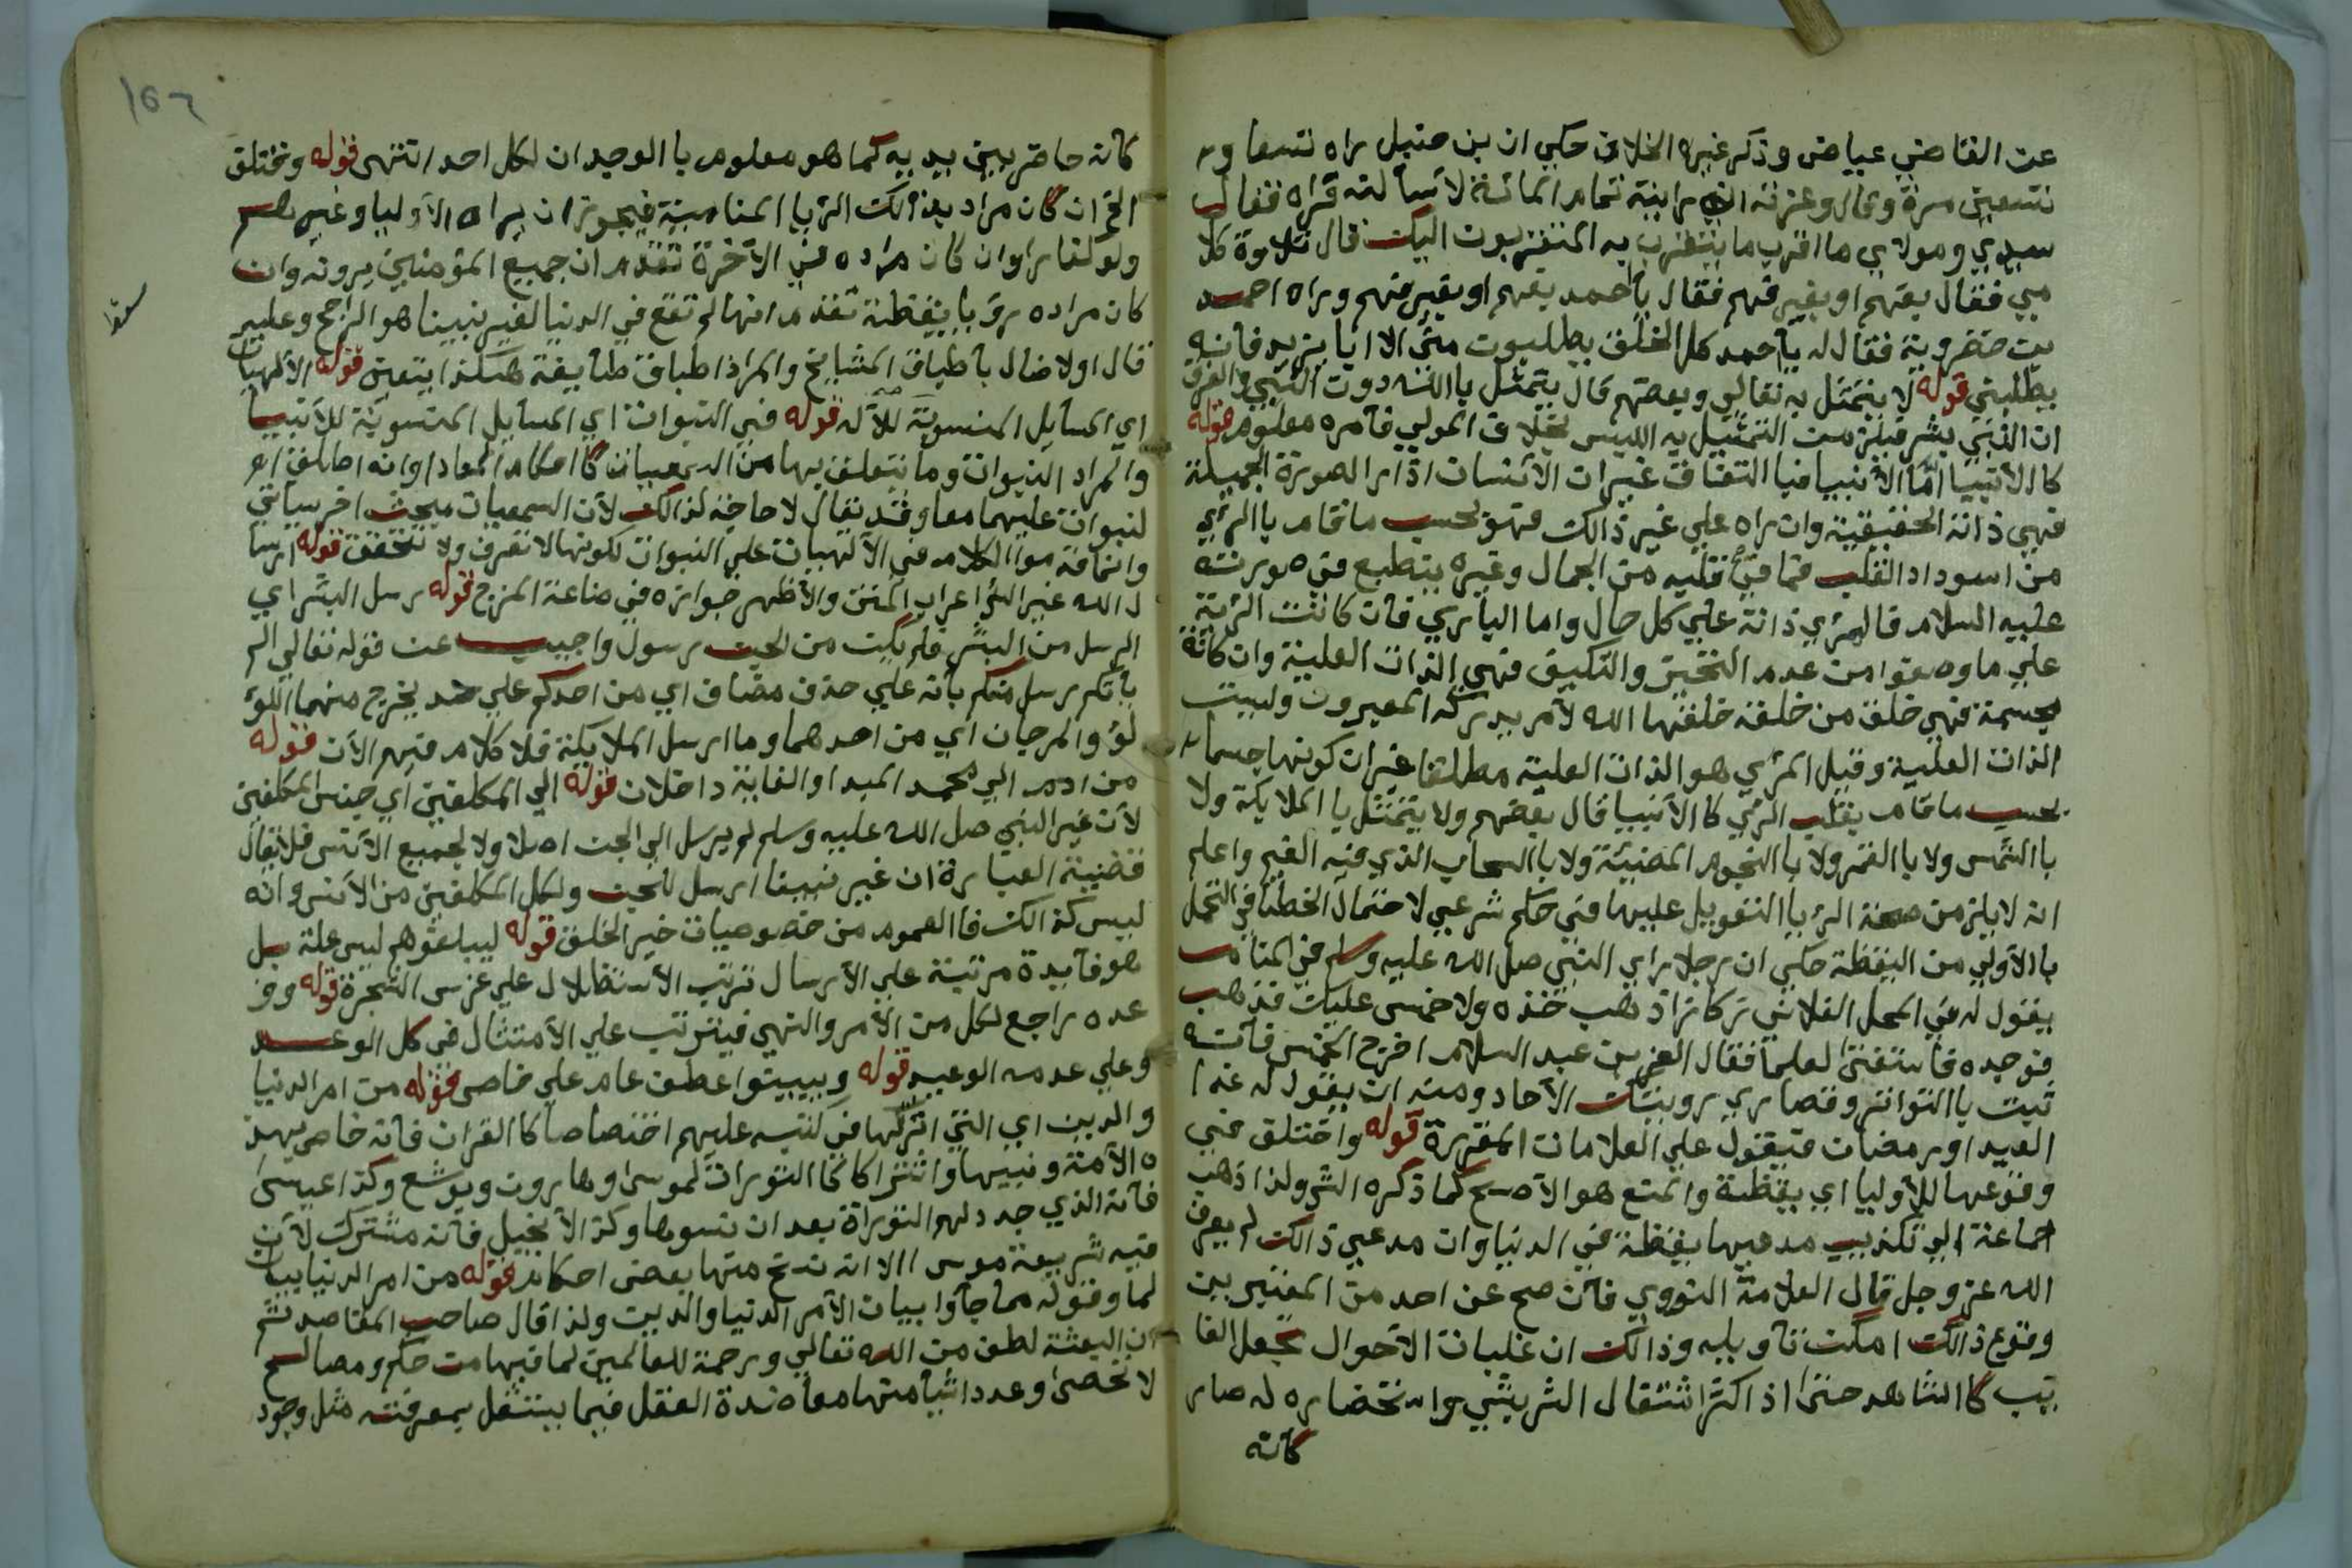 عن القاضي عياض وذكر غيره الخلاف حكي ان بن حنبل راه تسعا و
تسعين مرة وقال وعزته ان رايته تمام المائة لاسألنه فراه فقال
سيدي ومولاي ما اقرب ما يتقرب به المتقربون اليك قال تلاوة كلا
مي فقال بفهم او بغير فهم فقال يا احمد بفهم او بغير فهم وراه احمد
بن خضروية فقال له يا احمد كل الخلق يطلبون مني الا ابا يزيد فانه
يطلبني قوله لا يتمثل به تعالي وبعضهم قال يتمثل بالله دون النبي والفرق
ان النبي بشر فيلزم من التمثيل به اللبس بخلاف المولي فامره معلوم قوله
كا الانبيا اما الانبيا فيا اتفاق غير ان الانسان اذا را الصورة الجميلة
فهي ذاته الحقيقية وان راه علي غير ذالك فهو بحسب ما قام بالرئي
من اسوداد القلب فما في قلبه من الجمال وغيره ينطبع في صورته
عليه السلام فالمرئي ذاته علي كل حال واما الباري فان كانت الرئية
علي ما وصفوا من عدم التحيز والتكييف فهي الذات العلية وان كانة
بجسمة فهي خلق من خلقه خلقها الله لامر يدركه المعبرون وليست
الذات العلية وقيل المرئي هو الذات العلية مطلقا غير ان كونها جسما
بحسب ما قام بقلب الرئي كا الانبيا قال بعضهم ولا يتمثل با الملايكة ولا
با الشمس ولا با القمر ولا با النجوم المضيئة ولا با السحاب الذي فيه الغيم واعلم
انه لا يلزم من صحة الرئيا التعويل عليها في حكم شرعي لاحتمال الخطا في التحمل
با الاولي من اليقظة حكي ان رجلا راي النبي صل الله عليه وسلم في المنام
يقول له في المحل الفلاني ركازا ذهب خذه ولا خمس عليك فذهب
فوجده فاستفتي العلما فقال العز بن عبد السلام اخرج الخمس فانه
ثبت با التواتر وقصاري رويتك الاحاد ومنه ان يقول له غدا
العيد او رمضان فيعول علي العلامات المقررة قوله واختلف في
وقوعها للاوليا اي يقظة والمنع هو الاصح كما ذكره الش ولذا ذهب
جماعة الي تكذيب مدعيها يقظة في الدنيا وان مدعي ذالك لم يعرف
الله عز وجل قال العلامة النووي فان صح عن احد من المعتبرين
وقوع ذالك امكن تاويله وذالك ان غلبات الاحوال تجعل الغا
يب كا الشاهد حتي اذ اكثر اشتغال السر بشي واستحضاره له صار
كانه
كانه حاضر بين يديه كما هو معلوم با الوجدان لكل احد انتهي قوله ومختلف
الخ ان كان مراد بذالك الرئيا المنامية فيجوز ان يراه الاوليا وغيرهم
ولو كفارا وان كان مراده في الاخرة تقدم ان جميع المؤمنين يرونه وان
كان مراده رؤيا يقظة تقدم انها لم تقع في الدنيا لغير نبينا هو الراجح وعليه
قال اولا ضال با طباق المشايخ والمراد اطباق طايفة هكذا يتعين قوله الالهيات
اي المسايل المنسوبة للاله قوله في النبوات اي المسايل المنسوبة للانبيا
والمراد النبوات وما يتعلق بها من السمعيات كا احكام المعاد او انه اطلق ا
لنبوات عليهما معا وقد يقال لا حاجة لذالك لان السمعيات مبحث اخر سياتي
وانما قدموا الكلام في الالهيات علي النبوات لكونها لا تعرف ولا تتحقق قوله ارسا
ل الله غير الش اعراب المتن والاظهر جوازه في صناعة المزج قوله رسل البشر اي
الرسل من البشر فلم يكن من الجن رسول واجيب عن قوله تعالي الم
ياتكم رسل منكم بانه علي حذف مضاف اي من احدكم علي حد يخرج منهما اللؤ
لؤ والمرجان اي من احدهما وما ارسل الملايكة فلا كلام فيهم الان قوله
من ادم الي محمد المبدا والغاية داخلان قوله الي المكلفين اي جنس المكلفين
لان غير النبي صل الله عليه وسلم لم يرسل الي الجن اصلا ولا لجميع الانس فلا يقال
قضية العبارة ان غير نبينا ارسل للجن ولكل المكلفين من الانس وانه
ليس كذالك فا العموم من خصوصيات خير الخلق قوله ليبلغوهم ليس علة بل
هو فايدة مرتبة علي الارسال ترتب الاستظلال علي غرس الشجرة قوله ووز
عده راجع لكل من الامر والنهي فيترتب علي الامتثال في كل الوعد
وعلي عدمه الوعيد قوله ويبينوا عطف عام علي خاص قوله من امر الدنيا
والدين اي التي انزلها في كتبه عليهم اختصاصا كا القران فانه خاص بهذ
ه الامة ونبيها واشتراكا كا التورات لموسي وهارون ويوشع وكذا عيسي
فانه الذي جدد لهم التوراة بعد ان نسوها وكذ الانجيل فانه مشترك لان
فيه شريعة موسي الا انه نسخ منها بعض احكام قوله من امر الدنيا بيان
لما وقوله مما جاوا ببيان الامر الدنيا والدين ولذا قال صاحب المقاصد ثم
ان البعثة لطف من الله تعالي ورحمة للعالمين لما فيها من حكم ومصالح
لا تحصي وعدد اشيا منها معاضدة العقل فيما يستقل بمعرفته مثل وجود